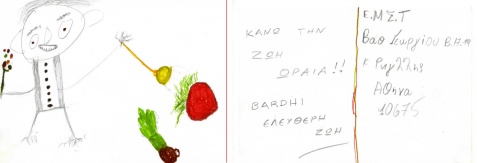 ΚΑΝΩ ΤΗΝ
ΖΩΗ
ΩΡΑΙΑ!!
BARDHI
ΕΛΕΥΘΕΡΗ
ΖΩΗ
Ε.Μ.Σ.Τ
Βασ Γεωργίου Β.
Κ Ρηγίλλης
Αθηνα
10675